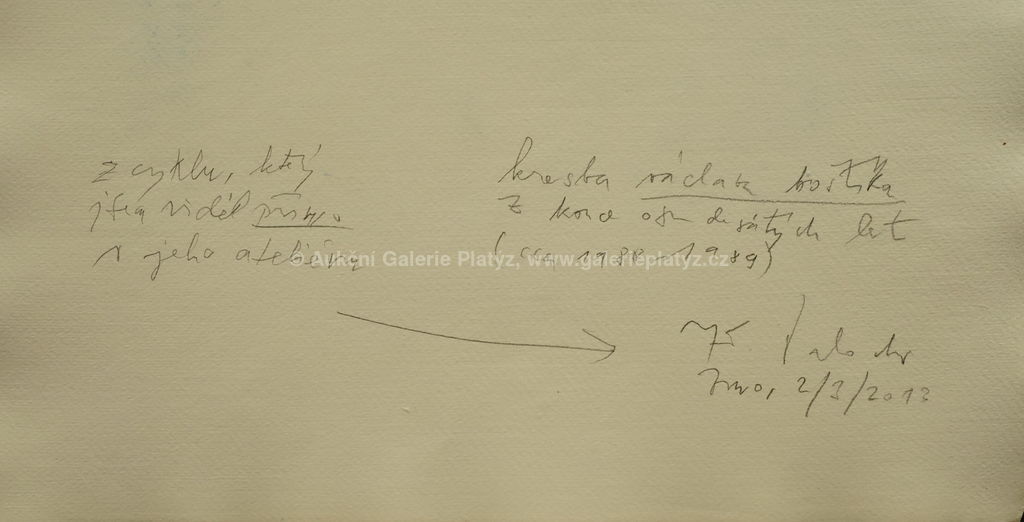 z cyklu, který
jsem viděl přímo
v jeho ateliéru
kresba václava boštíka
z konce osmdesátých let
(cca 1988-1989)
© Aukční Galerie Platýz, www.galerieplatyz.cz
Jiří Valoch
Brno, 2/3/2013